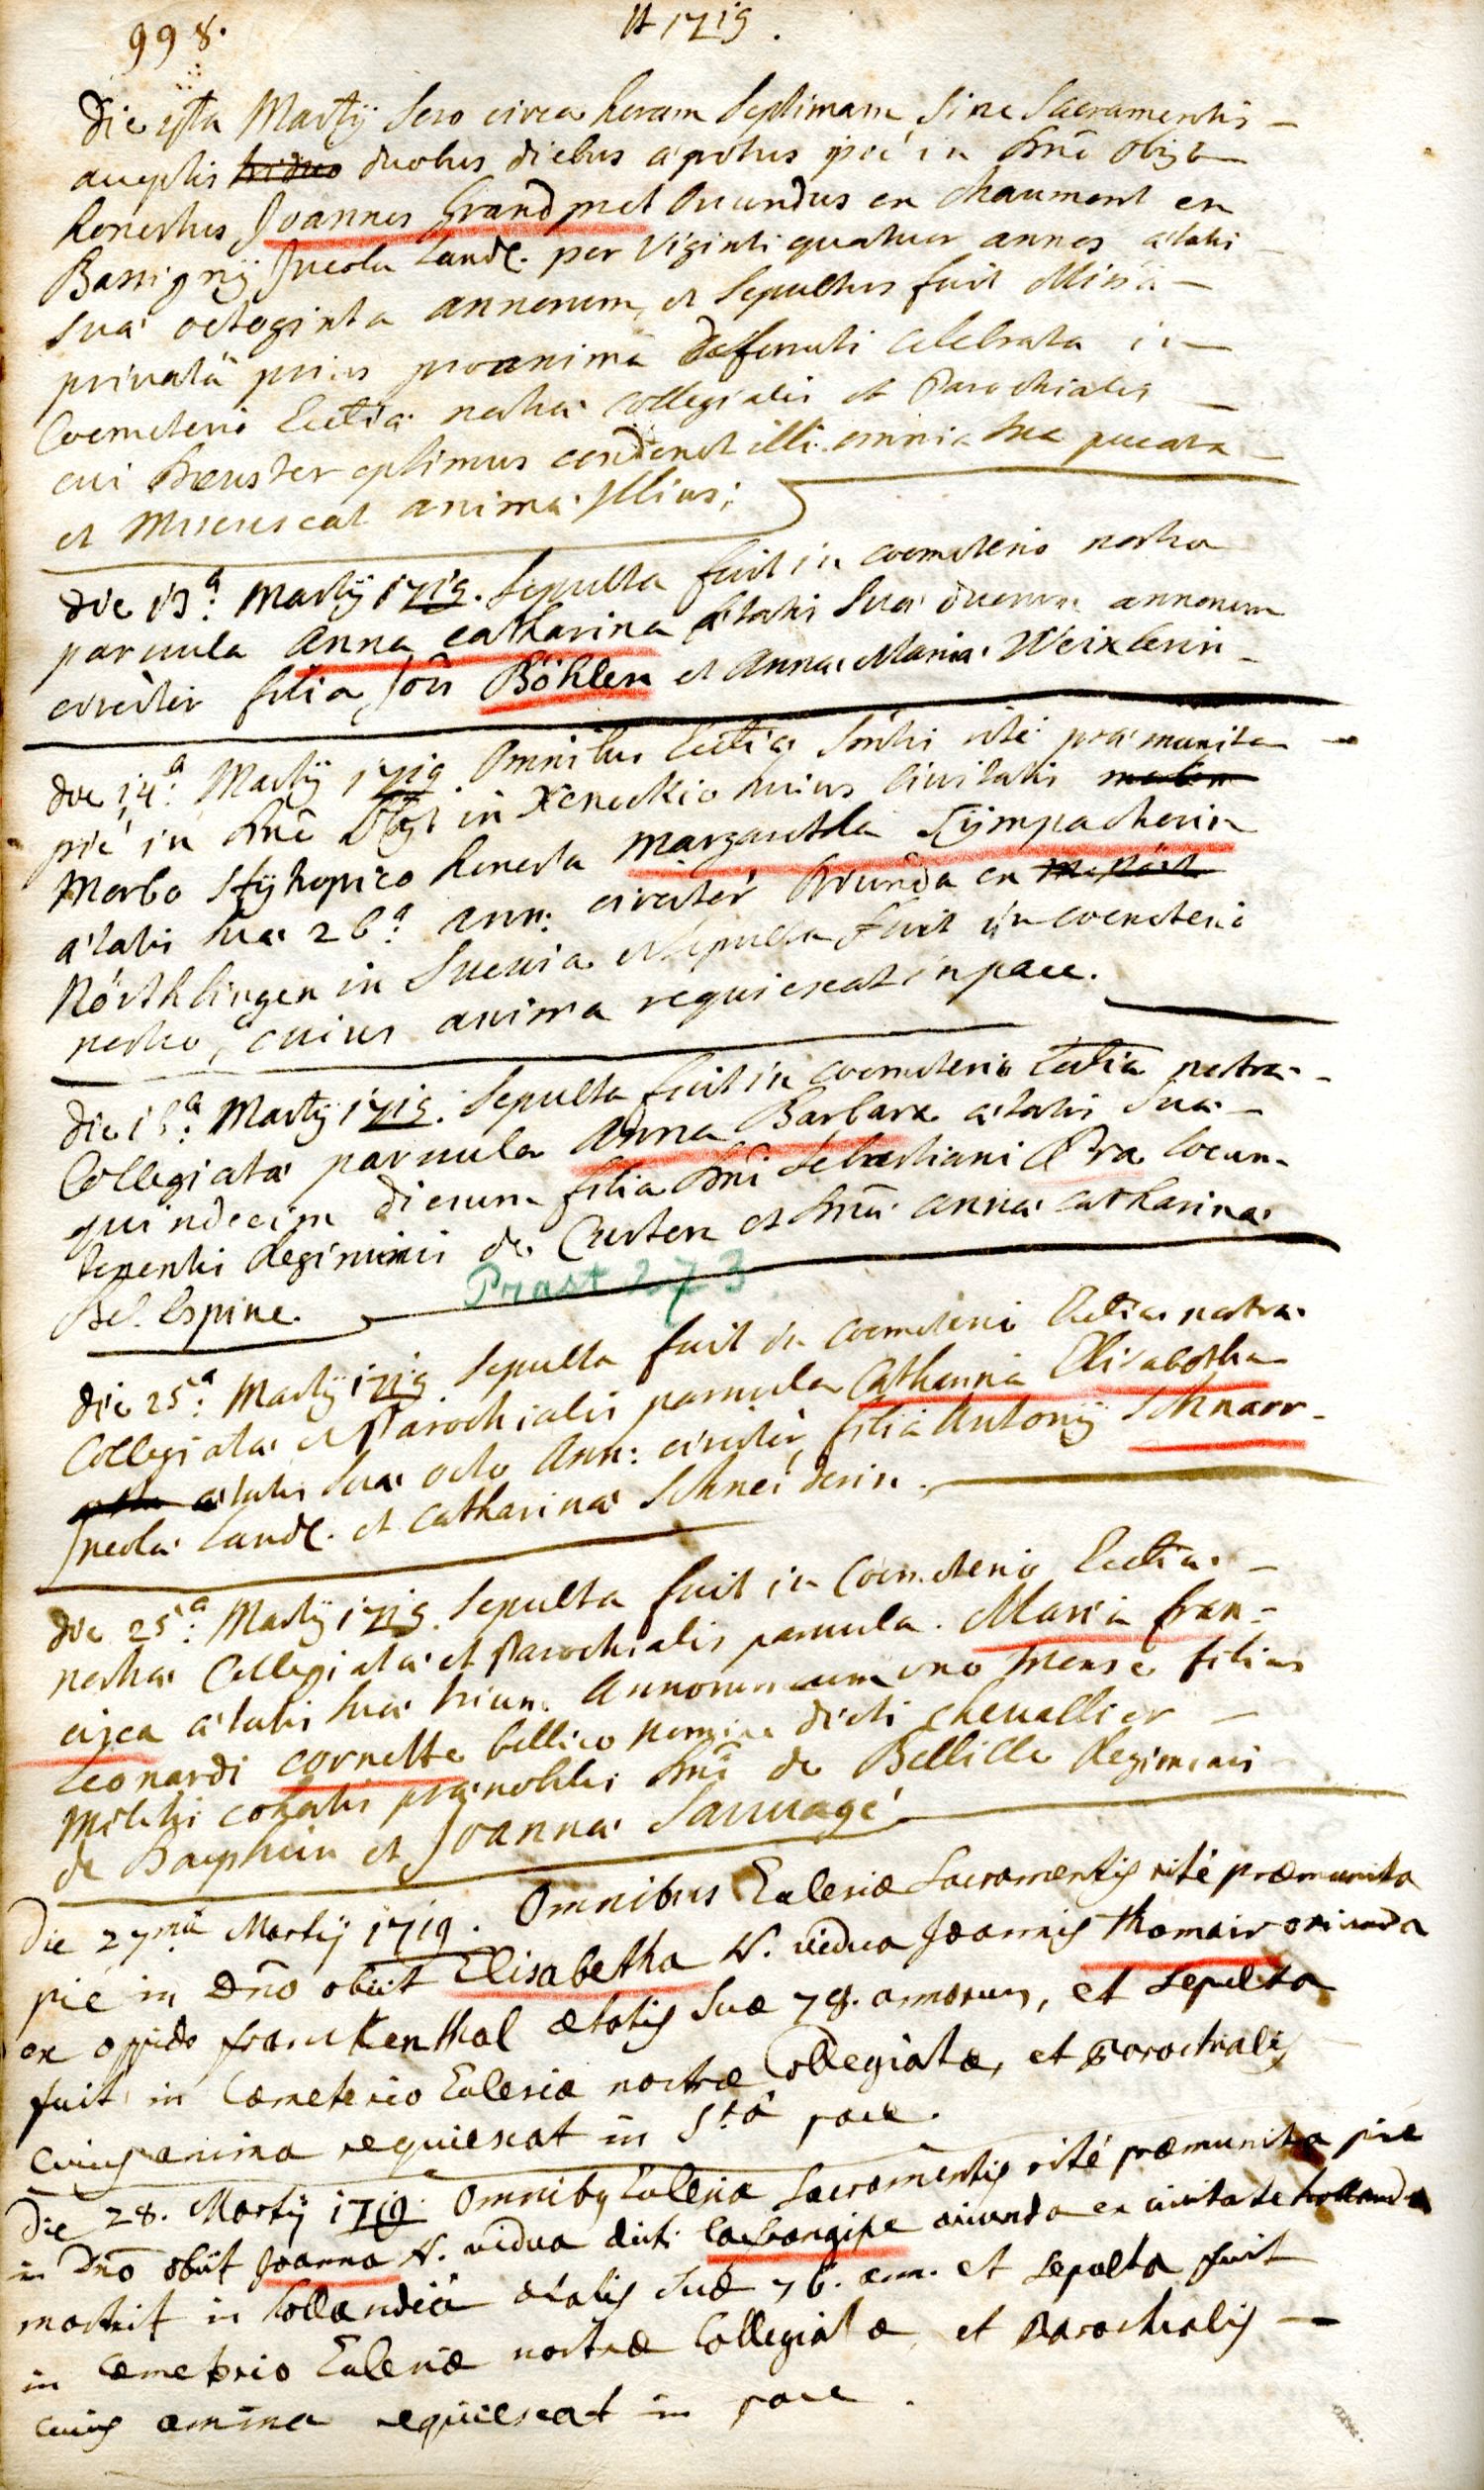 998.
1719.
Die Martÿ sero circa horam septimam sine sacramentis –
acceptis triduo duobus diebus pie in Dnō obijt
honestus Joannes Grandpret oriundus ex chaumont en
Bassignÿ Incola Land. per viginti quatuor annos ætatis
suæ octoginta annorum, et sepultus fuit Missâ –
privatâ prius pro animâ defuncti celebrata in –
Coemeterio Ecctiæ nostræ collegialis et Parochialis –
cui Deus ter optimus condonet illi omnia sua peccata –
et Miserescat animæ illius;
die 13ª: Martÿ 1719. sepulta fuit in coemeterio nostro
parvula anna catharina ætatis suæ duorum annorum
circiter filia Jois Böhler et Annæ Mariæ Weixlerin –
die 14ª: Martÿ 1719. omnibus Ecctiæ Smtis ritè præmunita –
piè in Dnō obijt in Xenockio huius civitatis
Morbo Hÿhopico honesta margaretha Sÿmpacherin
ætatis suæ 26ª ann: circiter oriunda ex
Nörthlingen in Suevia et sepulta fuit in coemeterio
nostro, cuius anima requiescat in pace.
die 15ª: Martÿ 1719. Sepulta fuit in coemeterio Ecctiæ nostræ –
Collegiatæ parvula Anna Barbara ætatis suæ –
quindecim dierum filia Dni Sebastiani Pra locum
tenentis Regiminis de Custen et Dnæ annæ catharinæ
Del Espine.
Prast 273
die 25ª: Martÿ 1719 sepulta fuit in coemeterio Ecctiæ nostræ
Collegiatæ et Parochialis parvula Catharina Elisabetha
ætatis suæ octo Ann: circiter, filia Antonÿ Schnarr –
Incolæ Land. et catharinæ Schneiderin.
die 25ª: Martÿ 1719. sepulta fuit in Coemeterio Ecctiæ –
nostræ Collegiatæ et Parochialis parvula. Maria fran=
cisca ætatis suæ trium Annorum cum uno mense filia
Leonardi cornette bellico nomine dicti chevallier –
militis cohortis prænobilis Dni de Bellille Regiminis
de Dauphin et Joannæ Sauvagé
Die 27mâ Martÿ 1719. Omnibus Eclesiæ Sacramentis rité præmunita
pié in Dño obiit Elisabetha N. vidua Joannis Thomair oriunda
ex oppido franckenthal ætatis suæ 78. annorum, et sepulta
fuit in Cæmeterio Eclesiæ nostræ Collegiatæ, et Parochialis
cuius anima requiescat in S:tâ pace.
Die 28. Martÿ 1719. Omnibus Eclesiæ Sacramentis rité præmunita pié
in Dño obiit Joanna N. vidua dicti oriunda ex civitate hollandiæ
mastrit in hollandiâ ætatis suæ 76. ann. et sepulta fuit
in cæmeterio Eclesiæ nostræ Collegiatæ, et Parochialis –
cuius anima requiescat in pace.